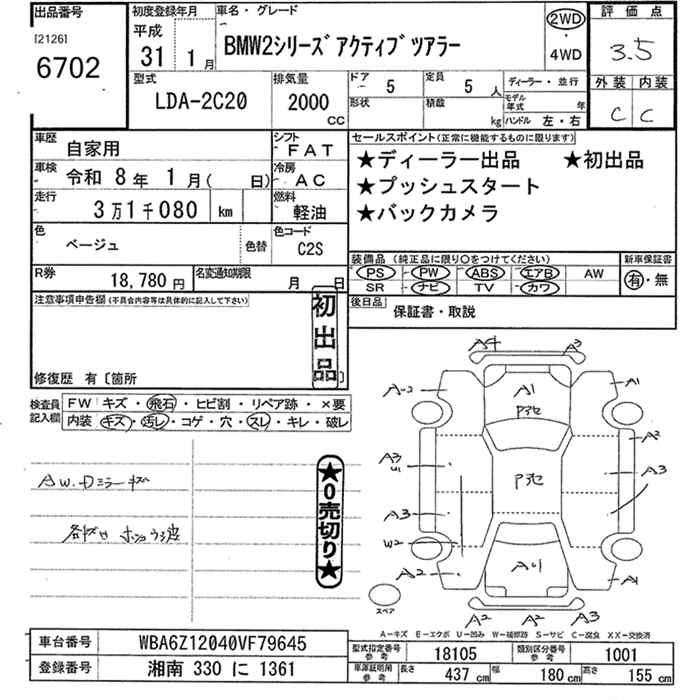 出品番号
[2126]
6702
初度登録年月
平成
31年 1月
車名・グレード
BMW2シリーズアクティブツアラー
2WD
・
4WD
評価点
3.5
外装 内装
C C
型式
LDA-2C20
排気量
2000
CC
ドア 5
定員 5 人
形状
積載
kg
ディーラー・並行
モデル年式 年
ハンドル 左・右
車歴
自家用
シフト
FAT
車検
令和 8年 1月( 日)
冷房
AC
走行
3万1千080 km
燃料
軽油
色
ベージュ
色替
色コード
C2S
R券
18,780 円
名変通知期限
月 日
セールスポイント(正常に機能するものに限ります)
★ディーラー出品 ★初出品
★プッシュスタート
★バックカメラ
装備品(純正品に限り○をつけてください)
新車保証書
PS PW ABS エアB AW
SR ナビ TV カワ
有・無
後日品
保証書・取説
注意事項申告欄(不具合内容等は具体的に記入して下さい)
初出品
修復歴 有〔箇所 〕
検査員記入欄
FW キズ・飛石・ヒビ割・リペア跡・×要
内装 キズ・汚レ・コゲ・穴・スレ・キレ・破レ
AW.Dミラーキズ
★0売切り★
A4 A3
A-2 A1 A1
P飛
A3 U1
A2
A3
P飛
A3
W2
A2 AU1 A1
スペア
A2 A2 A3
A-キズ E-エクボ U-凹み W-補修跡 S-サビ C-腐食 XX-交換済
車台番号
WBA6Z12040VF79645
登録番号
湘南 330 に 1361
型式指定番号
参考
18105
類別区分番号
参考
1001
車庫証明用
参考
長さ 437 cm
幅 180 cm
高さ 155 cm